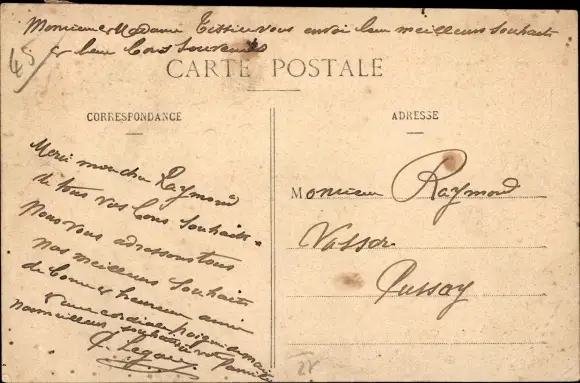 Monsieur & Madame Tissier vous envoi leur meilleurs souhaits
& leur bons souvenirs
45
CARTE POSTALE
CORRESPONDANCE
Merci mon cher Raymond
de tous vos bons souhaits
Nous vous adressons tous
nos meilleurs souhaits
de bonne & heureuse année
& une cordiale poignée de main
nos meilleurs souhaits à votre famille
ADRESSE
Monsieur Raymond
Vassor
Pussay